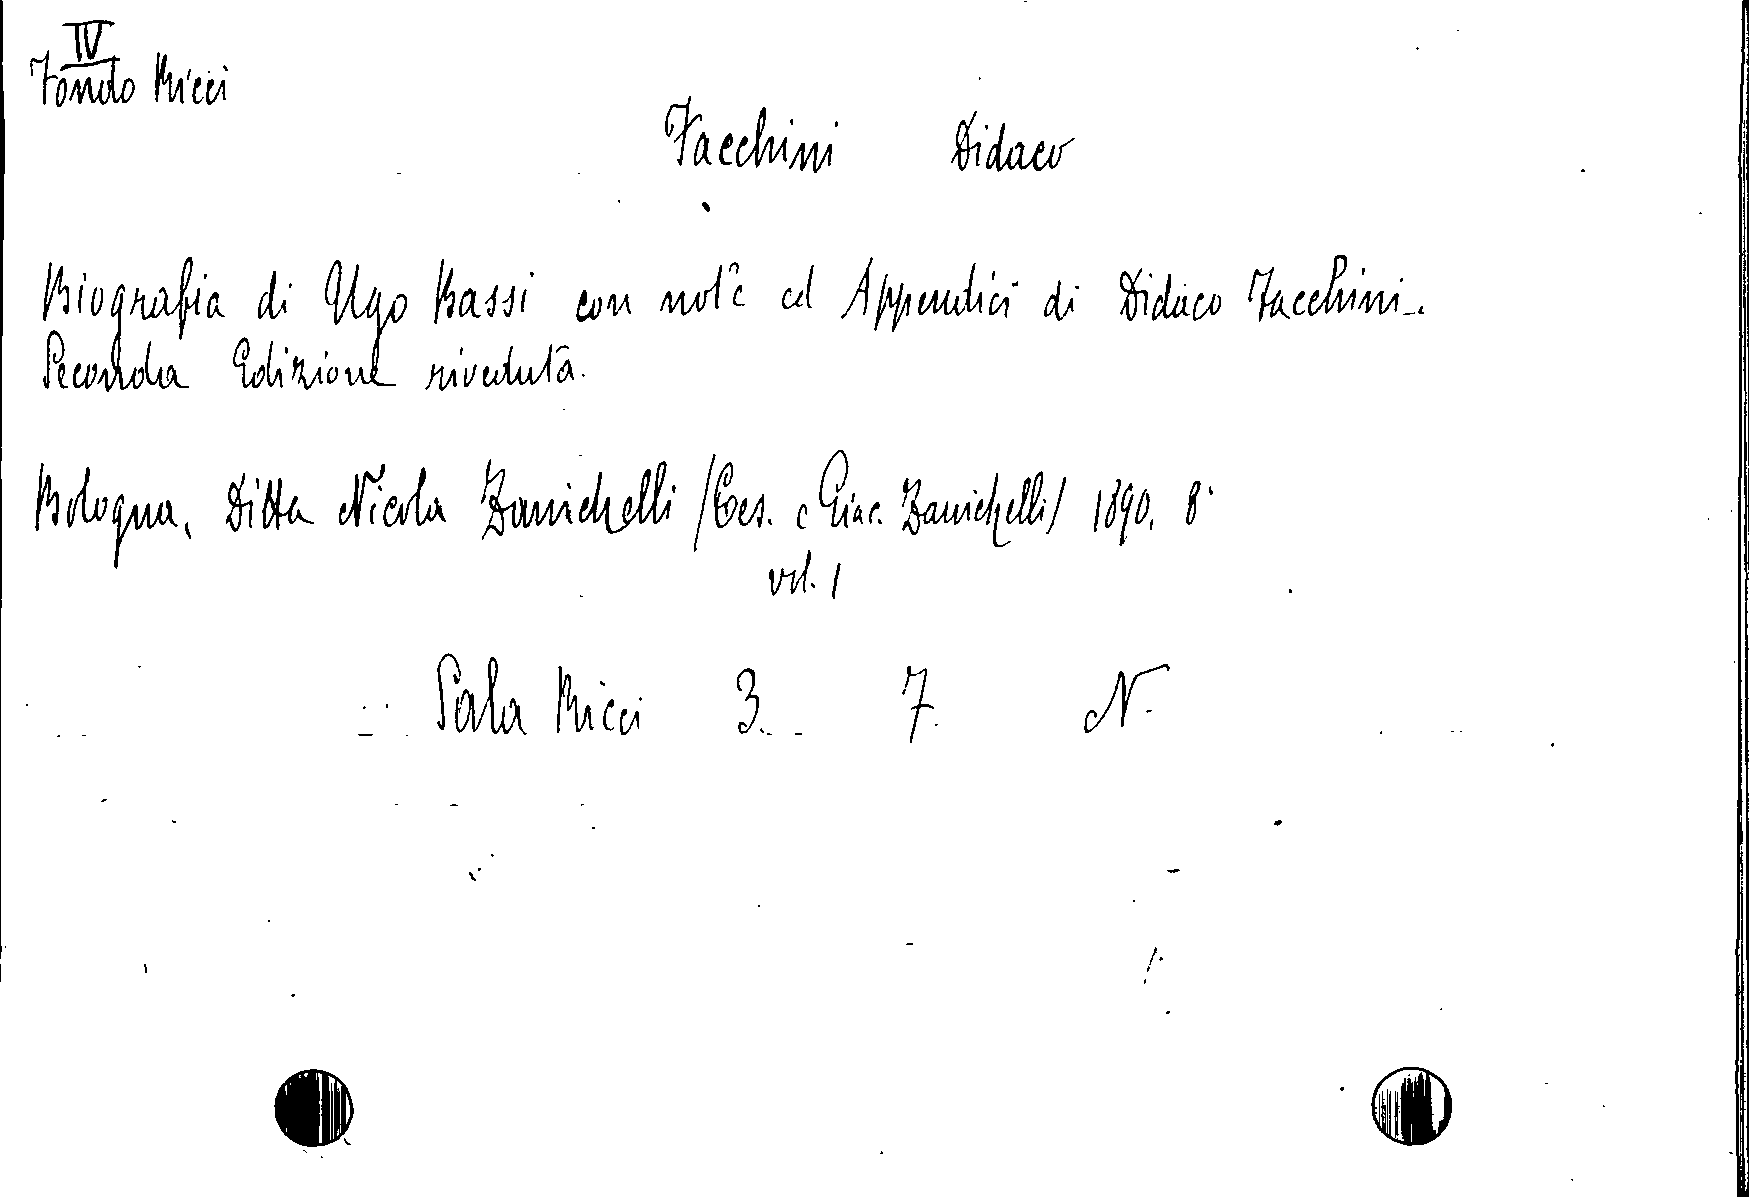 IV
Fondo Ricci
Facchini Didaco
Biografia di Ugo Bassi con note ed Appendici di Didaco Facchini.
Seconda Edizione riveduta.
Bologna, Ditta Nicola Zanichelli /Ces. e Giac. Zanichelli/ 1890. 8°
vol. 1
Sala Ricci 3. 7. N.